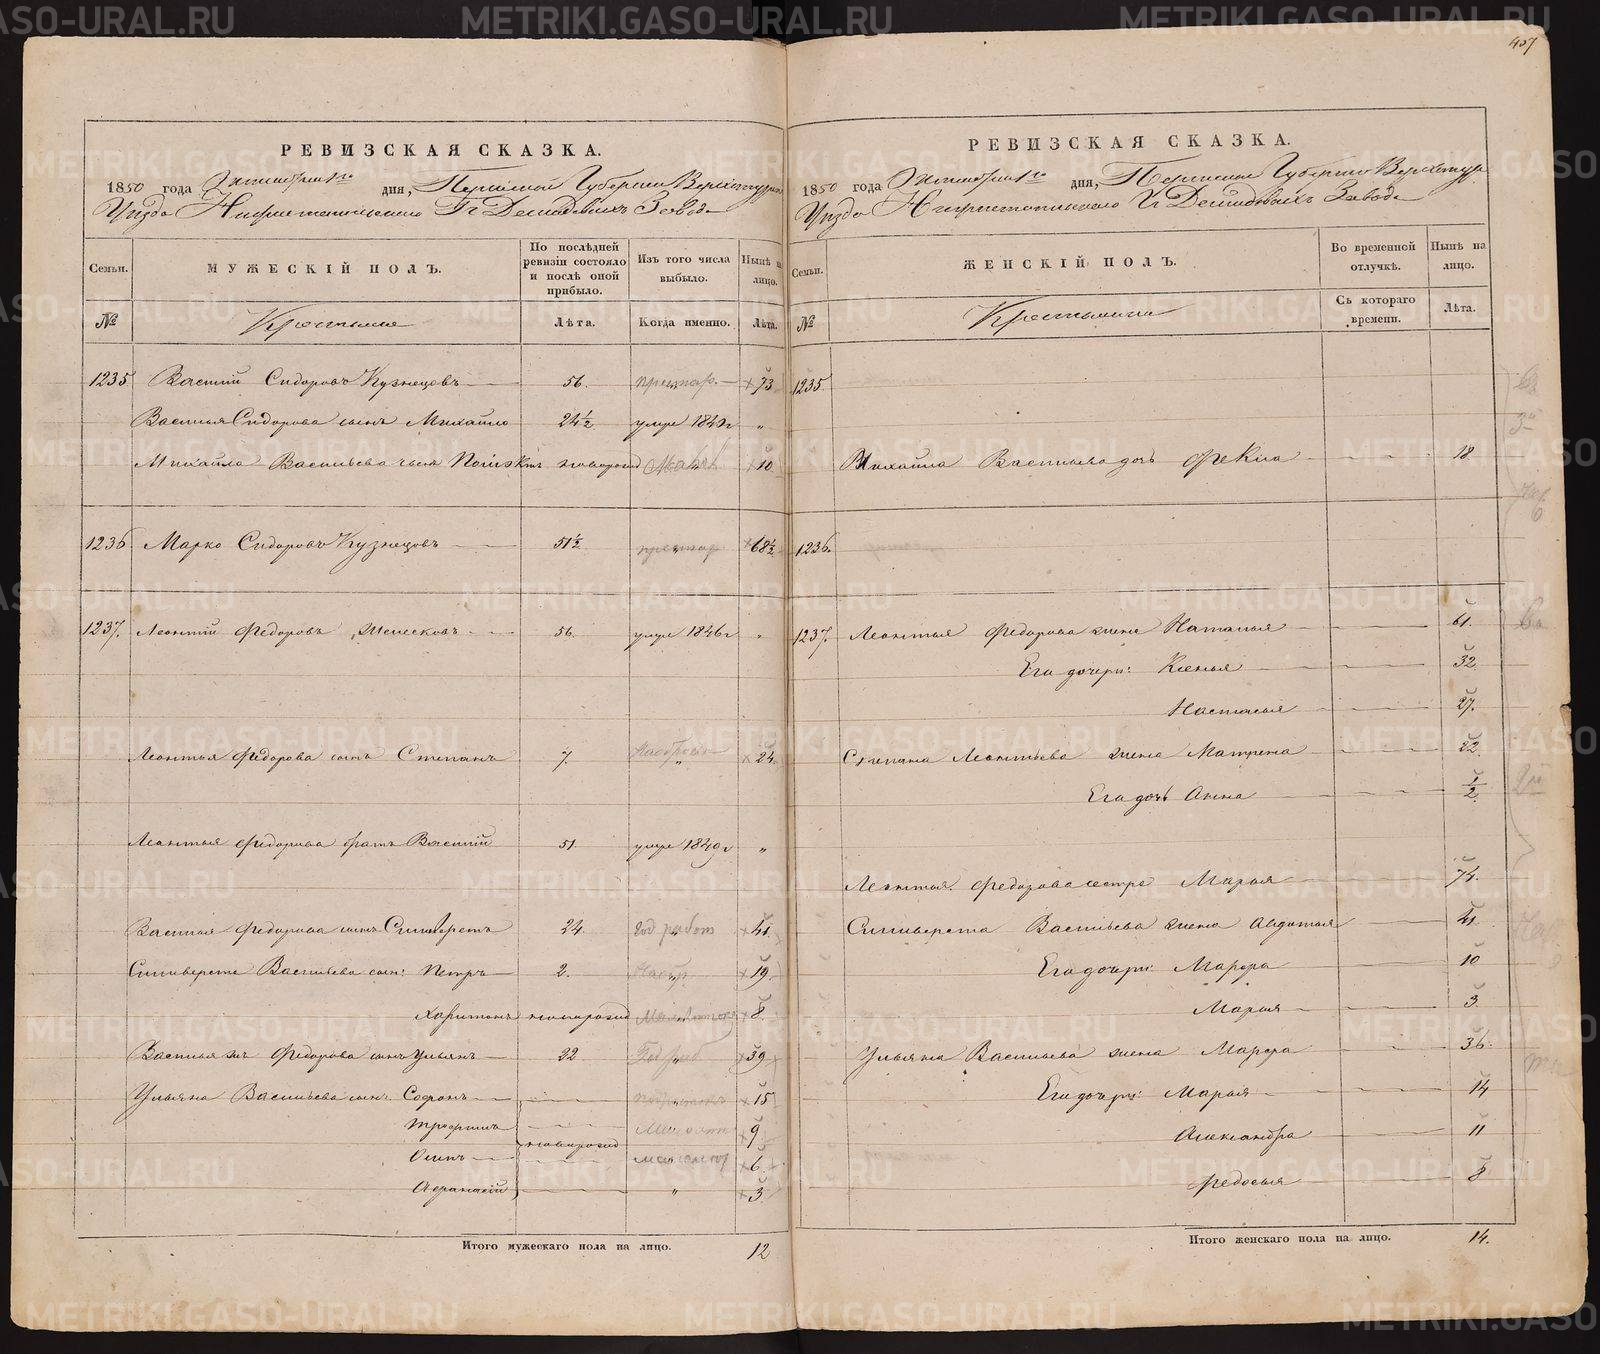 407
РЕВИЗСКАЯ СКАЗКА.
1850 года Октября 1го дня, Пермской Губернии Верхотурскаго
Уезда Нижнетагильскаго Гг Демидовыхъ Завода
Семьи.
МУЖЕСКІЙ ПОЛЪ.
По послѣдней ревизіи состояло и послѣ оной прибыло.
Изъ того числа выбыло.
Нынѣ на лицо.
№
Крестьяне
Лѣта.
Когда именно.
Лѣта.
1235 Василий Сидоровъ Кузнецовъ 56. престар. 73
Василья Сидорова сынъ Михайло 24½ умре 1840г „
Михайла Васильева сынъ новорожд 10
1236 Марко Сидоровъ Кузнецовъ 51½ престар 68½
1237. Леонтий Федоровъ 56. умре 1846г „
Леонтья Федорова сынъ Степанъ 7. 24
Леонтья Федорова братъ Василий 51 умре 1849г „
Василья Федорова сынъ Селиверстъ 24 год работ 41
Селиверста Васильева сын: Петръ 2. 19
Харитонъ новорожд Малолѣтокъ 8
Василья жъ Федорова сынъ Ульянъ 22 Год раб 39
Ульяна Васильева сын: Софронъ 15
Трофимъ 9
новорожд
Осипъ малолет 6
Афанасий „ 3
Итого мужескаго пола на лицо. 12
РЕВИЗСКАЯ СКАЗКА.
1850 года Октября 1го дня, Пермской Губернии Верхотур.
Уезда Нижнетагильскаго Гг Демидовыхъ Завода
Семьи.
ЖЕНСКІЙ ПОЛЪ.
Во временной отлучкѣ.
Нынѣ на лицо.
№
Крестьянки
Съ котораго времени.
Лѣта.
1235.
Михайла Васильева дочь Фекла 18
1236.
1237. Леонтья Федорова жена Наталья 61.
Его дочери: Ксенья 32
Настасья 27.
Степана Леонтьева жена Матрена 22
Его дочь Анна ½
Леонтья Федорова сестра Марья 74.
Селиверста Васильева жена Авдотья 41
Его дочери: Марфа 10
Марья 3
Ульяна Васильева жена Марфа 36.
Его дочери: Марья 14
Александра 11
Федосья 8
Итого женскаго пола на лицо. 14.
METRIKI.GASO-URAL.RU